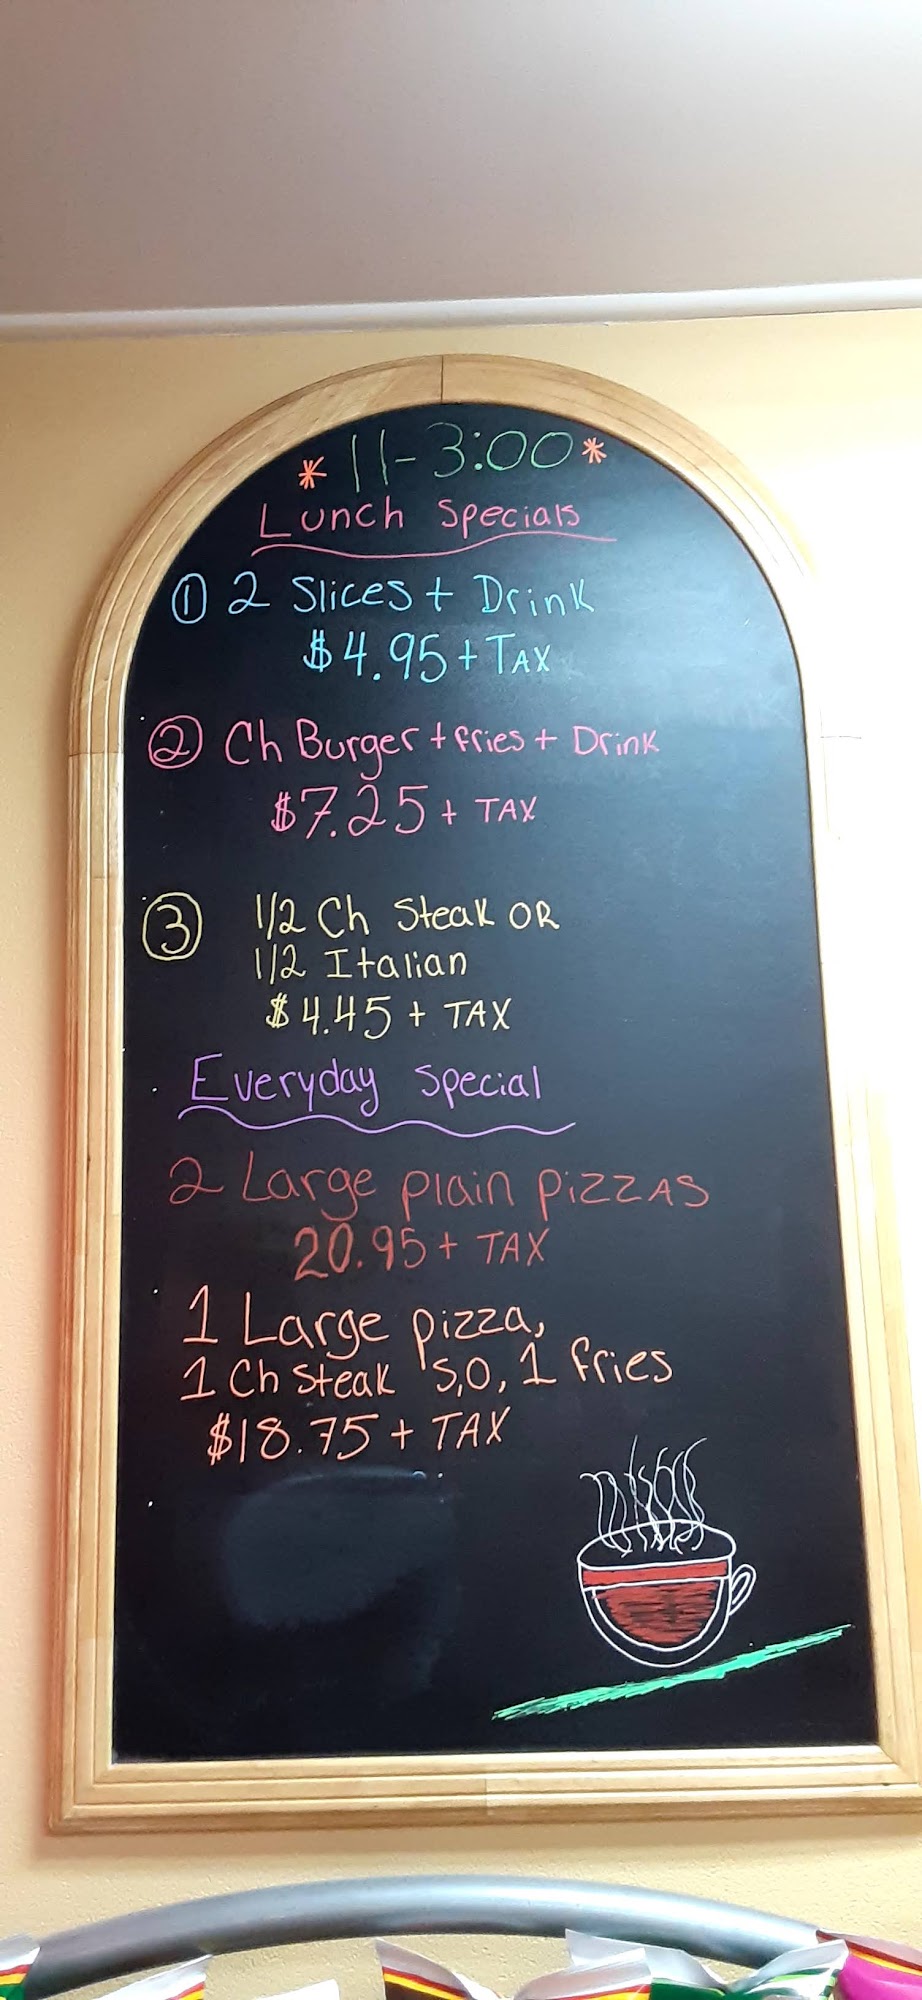 * 11-3:00 *
Lunch Specials
① 2 Slices + Drink
$4.95 + TAX
② Ch Burger + fries + Drink
$7.25 + TAX
③ 1/2 Ch Steak OR
1/2 Italian
$4.45 + TAX
Everyday Special
2 Large plain pizzas
20.95 + TAX
1 Large pizza,
1 Ch Steak S,O, 1 fries
$18.75 + TAX